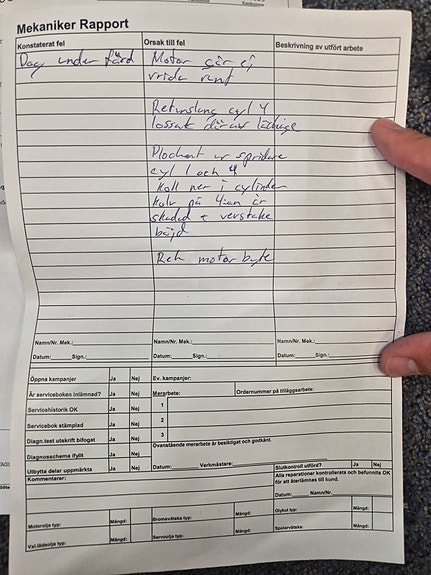 Mekaniker Rapport
Konstaterat fel
Orsak till fel
Beskrivning av utfört arbete
Dog under färd
Motor går ej
vrida runt
Returslang cyl 4
lossat därav läckage
Plockat ur spridare
cyl 1 och 4
Koll ner i cylinder
kolv på 4:an är
skadad + vevstake
böjd
Rek motorbyte
Namn/Nr. Mek.: Namn/Nr. Mek.: Namn/Nr. Mek.:
Datum: Sign.: Datum: Sign.: Datum: Sign.:
Öppna kampanjer Ja Nej Ev. kampanjer:
Är serviceboken inlämnad? Ja Nej Merarbete: Ordernummer på tilläggsarbete:
Servicehistorik OK Ja Nej 1
Servicebok stämplad Ja Nej 2
Diagn.test utskrift bifogat Ja Nej 3
Diagnosschema ifyllt Ja Nej Ovanstående merarbete är besiktigat och godkänt.
Utbytta delar uppmärkta Ja Nej Datum: Verkmästare: Slutkontroll utförd? Ja Nej
Kommentarer:
Alla reparationer kontrollerats och befunnits OK
för att återlämnas till kund.
Datum: Namn/Nr.
Motorolja typ: Mängd: Bromsvätska typ: Mängd: Glykol typ: Mängd:
Vxl.lådsolja typ: Mängd: Servoolja typ: Mängd: Spolarvätska: Mängd: